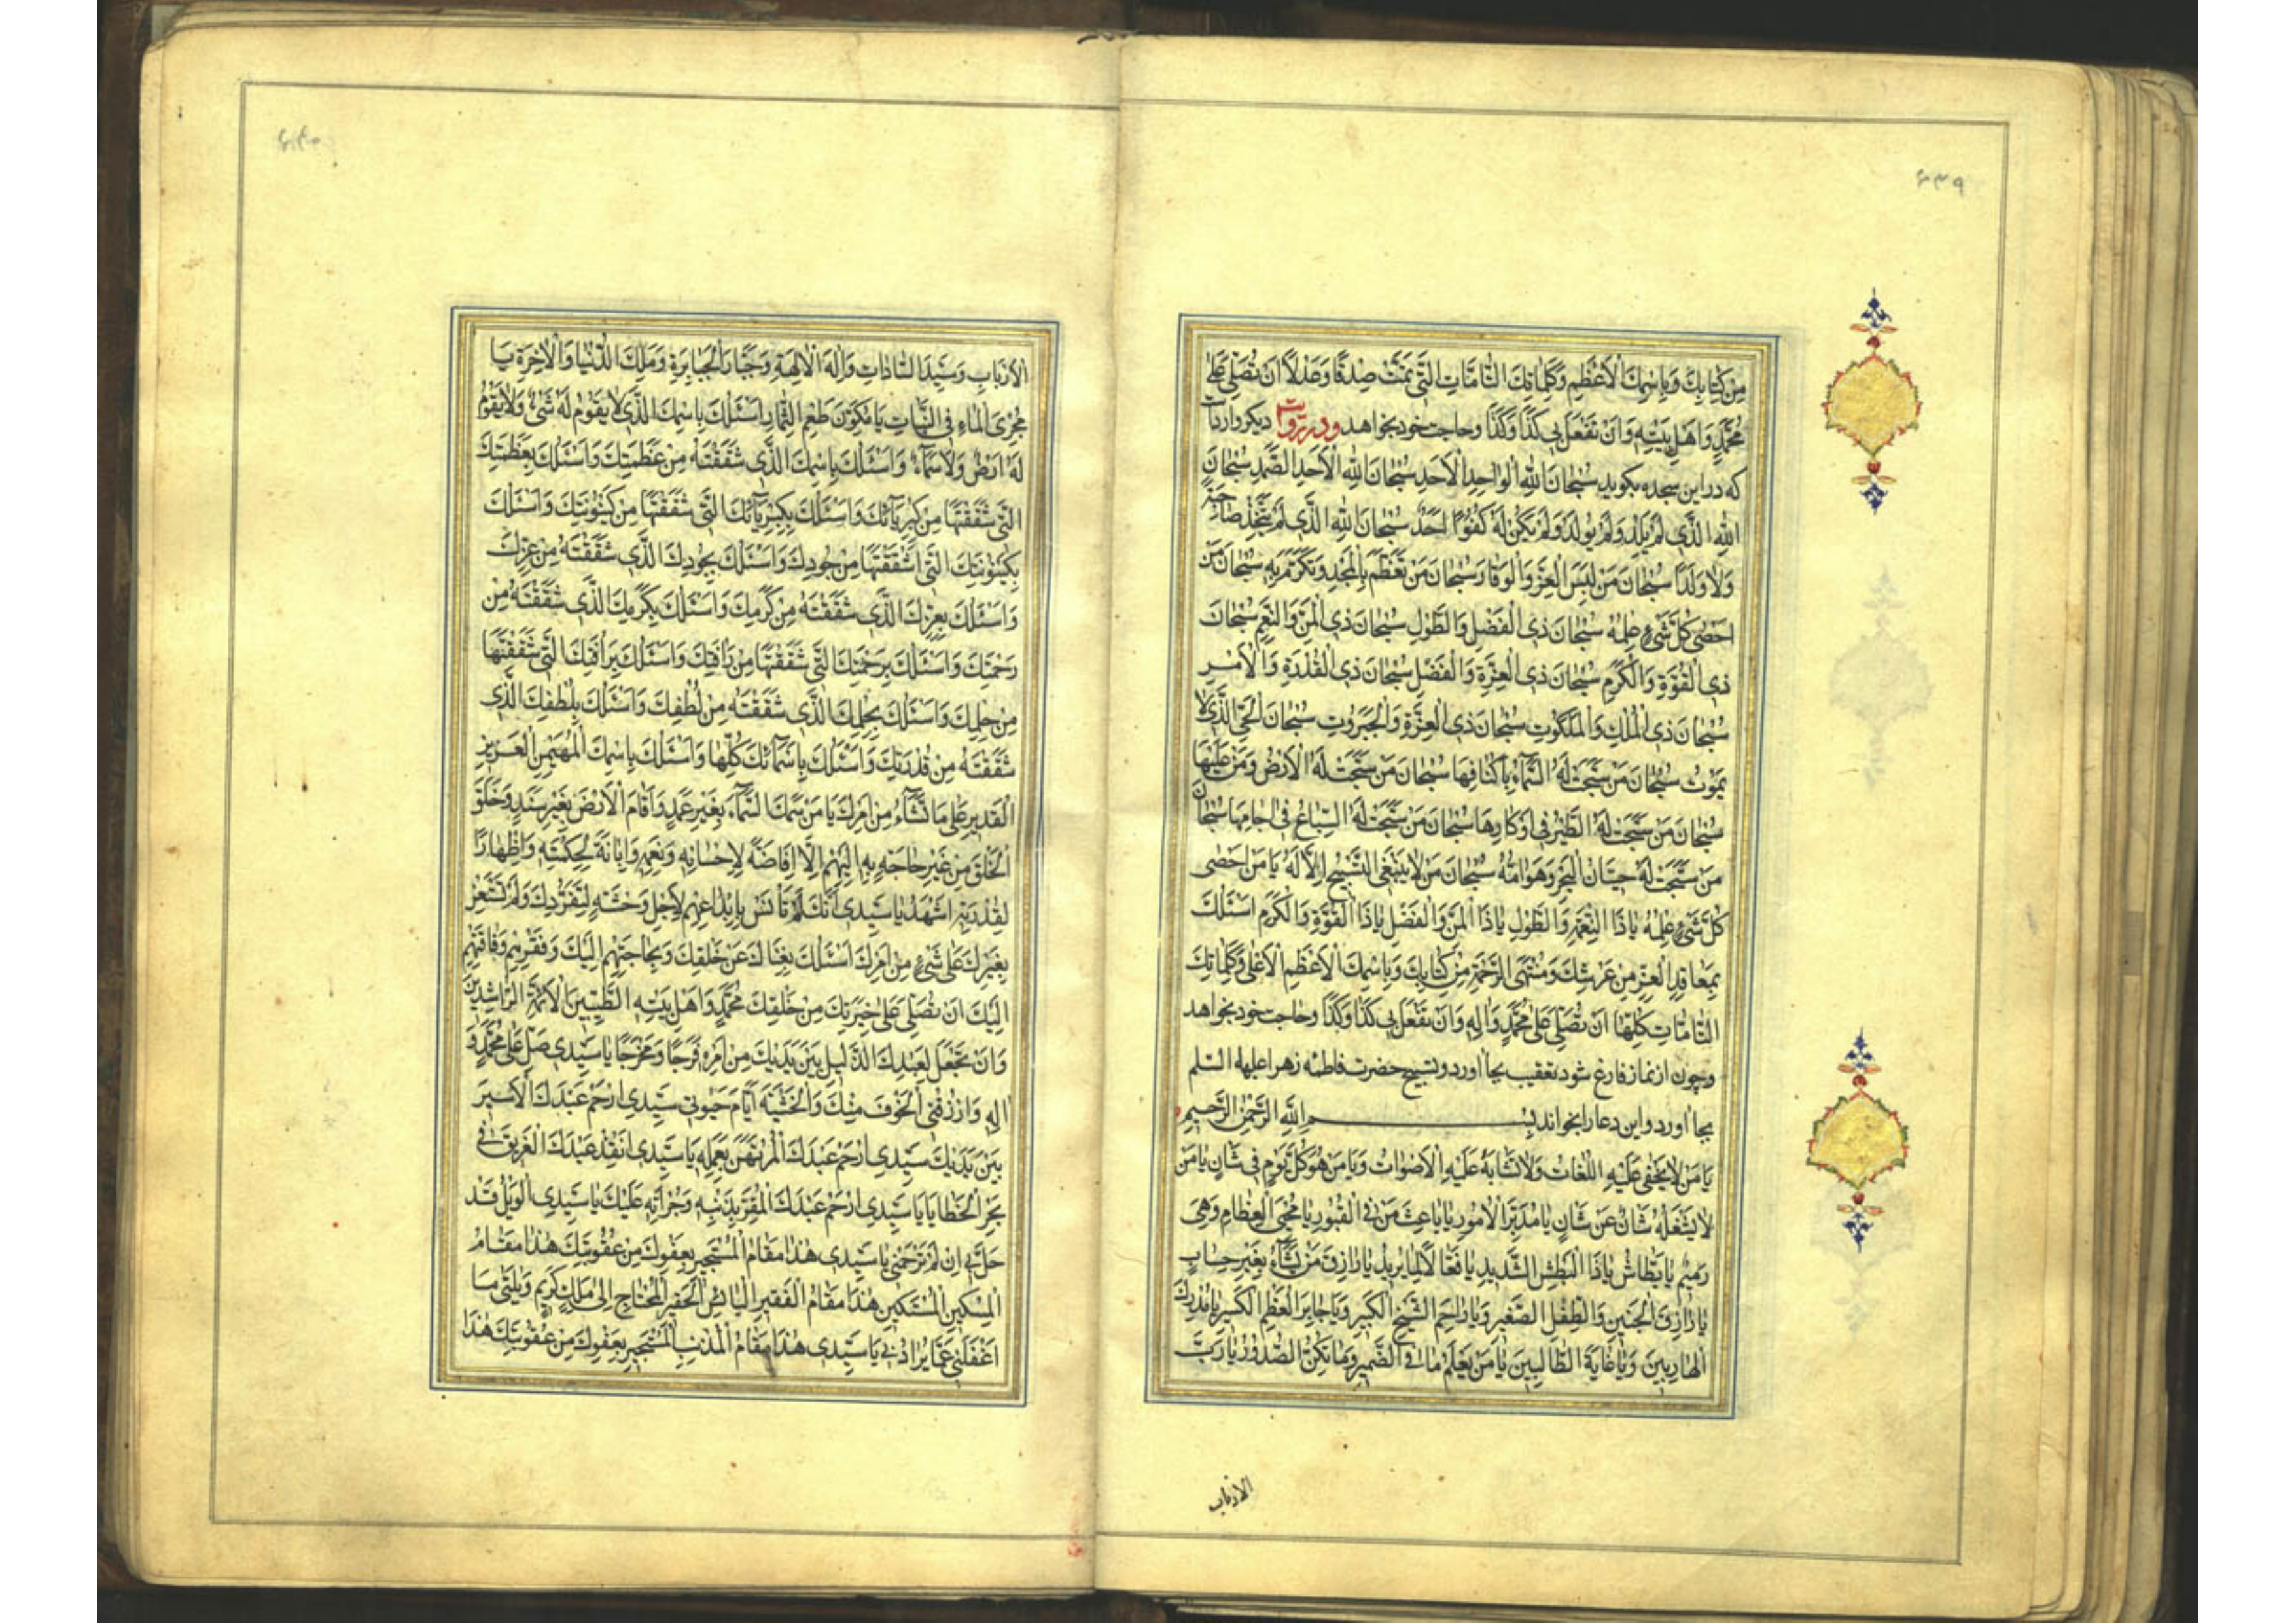 ۶۳۹
مِنْ كِتَابِكَ وَبِاِسْمِكَ الْاَعْظَمِ وَكَلِمَاتِكَ التَّامَّاتِ الَّتِي تَمَّتْ صِدْقًا وَعَدْلًا اَنْ تُصَلِّيَ عَلٰى
مُحَمَّدٍ وَاَهْلِ بَيْتِهِ وَاَنْ تَفْعَلَ بِي كَذَا وَكَذَا وحاجت خود بخواهد ودر روايت ديكر وارد است
كه در اين سجده بكويد سُبْحَانَ اللّٰهِ الْوَاحِدِ الْاَحَدِ سُبْحَانَ اللّٰهِ الْاَحَدِ الصَّمَدِ سُبْحَانَ
اللّٰهِ الَّذِي لَمْ يَلِدْ وَلَمْ يُولَدْ وَلَمْ يَكُنْ لَهُ كُفُوًا اَحَدٌ سُبْحَانَ اللّٰهِ الَّذِي لَمْ يَتَّخِذْ صَاحِبَةً
وَلَا وَلَدًا سُبْحَانَ مَنْ لَبِسَ الْعِزَّ وَالْوَقَارَ سُبْحَانَ مَنْ تَعَظَّمَ بِالْمَجْدِ وَتَكَرَّمَ بِهِ سُبْحَانَ مَنْ
اَحْصٰى كُلَّ شَيْءٍ عِلْمُهُ سُبْحَانَ ذِي الْفَضْلِ وَالطَّوْلِ سُبْحَانَ ذِي الْمَنِّ وَالنِّعَمِ سُبْحَانَ
ذِي الْقُوَّةِ وَالْكَرَمِ سُبْحَانَ ذِي الْعِزَّةِ وَالْفَضْلِ سُبْحَانَ ذِي الْقُدْرَةِ وَالْاَمْرِ
سُبْحَانَ ذِي الْمُلْكِ وَالْمَلَكُوتِ سُبْحَانَ ذِي الْعِزَّةِ وَالْجَبَرُوتِ سُبْحَانَ الْحَيِّ الَّذِي لَا
يَمُوتُ سُبْحَانَ مَنْ سَبَّحَتْ لَهُ السَّمَاءُ بِاَكْنَافِهَا سُبْحَانَ مَنْ سَبَّحَتْ لَهُ الْاَرْضُ وَمَنْ عَلَيْهَا
سُبْحَانَ مَنْ سَبَّحَتْ لَهُ الطَّيْرُ فِي اَوْكَارِهَا سُبْحَانَ مَنْ سَبَّحَتْ لَهُ السِّبَاعُ فِي اٰجَامِهَا سُبْحَانَ
مَنْ سَبَّحَتْ لَهُ حِيتَانُ الْبَحْرِ وَهَوَامُّهُ سُبْحَانَ مَنْ لَا يَنْبَغِي التَّسْبِيحُ اِلَّا لَهُ يَا مَنْ اَحْصٰى
كُلَّ شَيْءٍ عِلْمُهُ يَا ذَا النِّعْمَةِ وَالطَّوْلِ يَا ذَا الْمَنِّ وَالْفَضْلِ يَا ذَا الْقُوَّةِ وَالْكَرَمِ اَسْئَلُكَ
بِمَعَاقِدِ الْعِزِّ مِنْ عَرْشِكَ وَمُنْتَهَى الرَّحْمَةِ مِنْ كِتَابِكَ وَبِاِسْمِكَ الْاَعْظَمِ الْاَعْلٰى وَكَلِمَاتِكَ
التَّامَّاتِ كُلِّهَا اَنْ تُصَلِّيَ عَلٰى مُحَمَّدٍ وَاٰلِهِ وَاَنْ تَفْعَلَ بِي كَذَا وَكَذَا وحاجت خود بخواهد
وچون از نماز فارغ شود تعقيب بجا آورد وتسبيح حضرت فاطمه زهرا عليها السلم
بجا آورد واين دعا را بخواند بِسْمِ اللّٰهِ الرَّحْمٰنِ الرَّحِيمِ
يَا مَنْ لَا يَخْفٰى عَلَيْهِ اللُّغَاتُ وَلَا تَشَابَهُ عَلَيْهِ الْاَصْوَاتُ وَيَا مَنْ هُوَ كُلَّ يَوْمٍ فِي شَانٍ يَا مَنْ
لَا يَشْغَلُهُ شَانٌ عَنْ شَانٍ يَا مُدَبِّرَ الْاُمُورِ يَا بَاعِثَ مَنْ فِي الْقُبُورِ يَا مُحْيِيَ الْعِظَامِ وَهِيَ
رَمِيمٌ يَا بَطَّاشُ يَا ذَا الْبَطْشِ الشَّدِيدِ يَا فَعَّالًا لِمَا يُرِيدُ يَا رَازِقَ مَنْ يَشَاءُ بِغَيْرِ حِسَابٍ
يَا رَازِقَ الْجَنِينِ وَالطِّفْلِ الصَّغِيرِ وَيَا رَاحِمَ الشَّيْخِ الْكَبِيرِ وَيَا جَابِرَ الْعَظْمِ الْكَسِيرِ يَا مُدْرِكَ
الْهَارِبِينَ وَيَا غَايَةَ الطَّالِبِينَ يَا مَنْ يَعْلَمُ مَا فِي الضَّمِيرِ وَمَا تُكِنُّ الصُّدُورُ يَا رَبَّ
الارباب
۶۴۰
الْاَرْبَابِ وَسَيِّدَ السَّادَاتِ وَاِلٰهَ الْاٰلِهَةِ وَجَبَّارَ الْجَبَابِرَةِ وَمَلِكَ الدُّنْيَا وَالْاٰخِرَةِ يَا
مُجْرِيَ الْمَاءِ فِي النَّبَاتِ يَا مُكَوِّنَ طَعْمِ الثِّمَارِ اَسْئَلُكَ بِاسْمِكَ الَّذِي لَا يَقُومُ لَهُ شَيْءٌ وَلَا يَقُومُ
لَهُ اَرْضٌ وَلَا سَمَاءٌ وَاَسْئَلُكَ بِاِسْمِكَ الَّذِي شَقَقْتَهُ مِنْ عَظَمَتِكَ وَاَسْئَلُكَ بِعَظَمَتِكَ
الَّتِي شَقَقْتَهَا مِنْ كِبْرِيَائِكَ وَاَسْئَلُكَ بِكِبْرِيَائِكَ الَّتِي شَقَقْتَهَا مِنْ كَيْنُونَتِكَ وَاَسْئَلُكَ
بِكَيْنُونَتِكَ الَّتِي اشْقَقْتَهَا مِنْ جُودِكَ وَاَسْئَلُكَ بِجُودِكَ الَّذِي شَقَقْتَهُ مِنْ عِزِّكَ
وَاَسْئَلُكَ بِعِزِّكَ الَّذِي شَقَقْتَهُ مِنْ كَرَمِكَ وَاَسْئَلُكَ بِكَرَمِكَ الَّذِي شَقَقْتَهُ مِنْ
رَحْمَتِكَ وَاَسْئَلُكَ بِرَحْمَتِكَ الَّتِي شَقَقْتَهَا مِنْ رَاْفَتِكَ وَاَسْئَلُكَ بِرَاْفَتِكَ الَّتِي شَقَقْتَهَا
مِنْ حِلْمِكَ وَاَسْئَلُكَ بِحِلْمِكَ الَّذِي شَقَقْتَهُ مِنْ لُطْفِكَ وَاَسْئَلُكَ بِلُطْفِكَ الَّذِي
شَقَقْتَهُ مِنْ قُدْرَتِكَ وَاَسْئَلُكَ بِاَسْمَائِكَ كُلِّهَا وَاَسْئَلُكَ بِاسْمِكَ الْمُهَيْمِنِ الْعَزِيزِ
الْقَدِيرِ عَلٰى مَا تَشَاءُ مِنْ اَمْرِكَ يَا مَنْ سَمَكَ السَّمَاءَ بِغَيْرِ عَمَدٍ وَاَقَامَ الْاَرْضَ بِغَيْرِ سَنَدٍ وَخَلَقَ
الْخَلْقَ مِنْ غَيْرِ حَاجَةٍ بِهِ اِلَيْهِمْ اِلَّا اِفَاضَةً لِاِحْسَانِهِ وَنِعَمِهِ وَاِبَانَةً لِحِكْمَتِهِ وَاِظْهَارًا
لِقُدْرَتِهِ اَشْهَدُ يَا سَيِّدِي اَنَّكَ لَمْ تَاْنَسْ بِاِبْدَاعِهِمْ لِاَجْلِ وَحْشَةٍ لِتَفَرُّدِكَ وَلَمْ تَسْتَعِنْ
بِغَيْرِكَ عَلٰى شَيْءٍ مِنْ اَمْرِكَ اَسْئَلُكَ بِغِنَاكَ عَنْ خَلْقِكَ وَبِحَاجَتِهِمْ اِلَيْكَ وَفَقْرِهِمْ وَفَاقَتِهِمْ
اِلَيْكَ اَنْ تُصَلِّيَ عَلٰى خِيَرَتِكَ مِنْ خَلْقِكَ مُحَمَّدٍ وَاَهْلِ بَيْتِهِ الطَّيِّبِينَ الْاَئِمَّةِ الرَّاشِدِينَ
وَاَنْ تَجْعَلَ لِعَبْدِكَ الذَّلِيلِ بَيْنَ يَدَيْكَ مِنْ اَمْرِهِ فَرَجًا وَمَخْرَجًا يَا سَيِّدِي صَلِّ عَلٰى مُحَمَّدٍ وَ
اٰلِهِ وَارْزُقْنِي الْخَوْفَ مِنْكَ وَالْخَشْيَةَ اَيَّامَ حَيٰوتِي سَيِّدِي ارْحَمْ عَبْدَكَ الْاَسِيرَ
بَيْنَ يَدَيْكَ سَيِّدِي ارْحَمْ عَبْدَكَ الْمُرْتَهَنَ بِعَمَلِهِ يَا سَيِّدِي اَنْقِذْ عَبْدَكَ الْغَرِيقَ فِي
بَحْرِ الْخَطَايَا يَا سَيِّدِي ارْحَمْ عَبْدَكَ الْمُقِرَّ بِذَنْبِهِ وَجُرْاَتِهِ عَلَيْكَ يَا سَيِّدِي الْوَيْلُ قَدْ
حَلَّ بِي اِنْ لَمْ تَرْحَمْنِي يَا سَيِّدِي هٰذَا مَقَامُ الْمُسْتَجِيرِ بِعَفْوِكَ مِنْ عُقُوبَتِكَ هٰذَا مَقَامُ
الْمِسْكِينِ الْمُسْتَكِينِ هٰذَا مَقَامُ الْفَقِيرِ الْبَائِسِ الْحَقِيرِ الْمُحْتَاجِ اِلٰى مَلِكٍ كَرِيمٍ وَيْلَتٰى مَا
اَغْفَلَنِي عَمَّا يُرَادُ بِي يَا سَيِّدِي هٰذَا مَقَامُ الْمُذْنِبِ الْمُسْتَجِيرِ بِعَفْوِكَ مِنْ عُقُوبَتِكَ هٰذَا